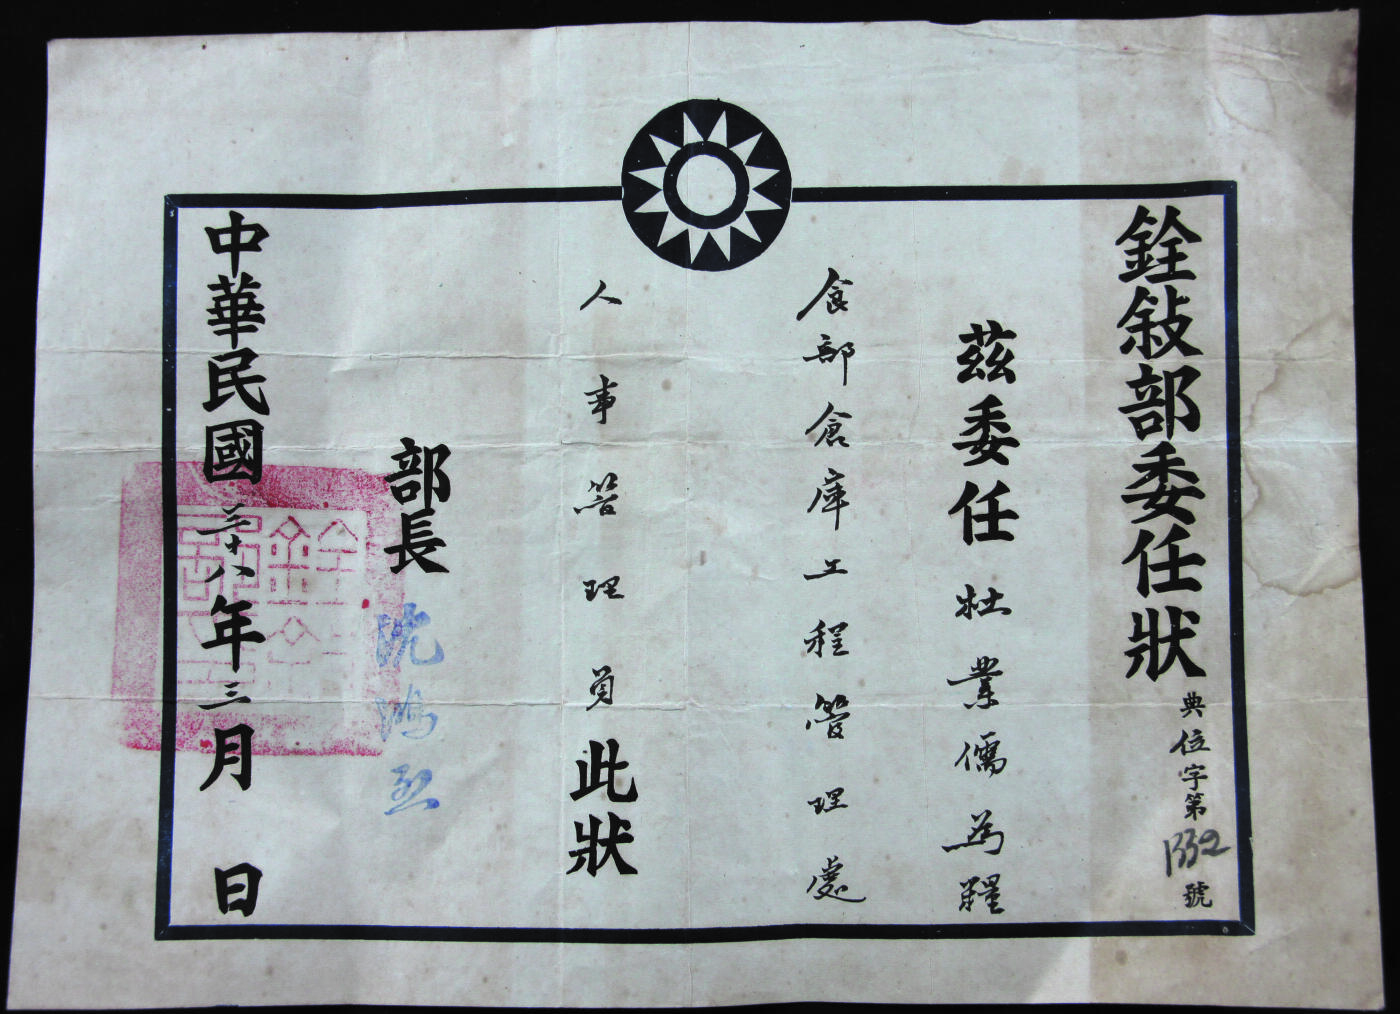 銓敍部委任狀
典位字第1332號
茲委任杜業儒為糧
食部倉庫工程管理處
人事管理員此狀
部長 沈鴻烈
中華民國三十八年三月 日